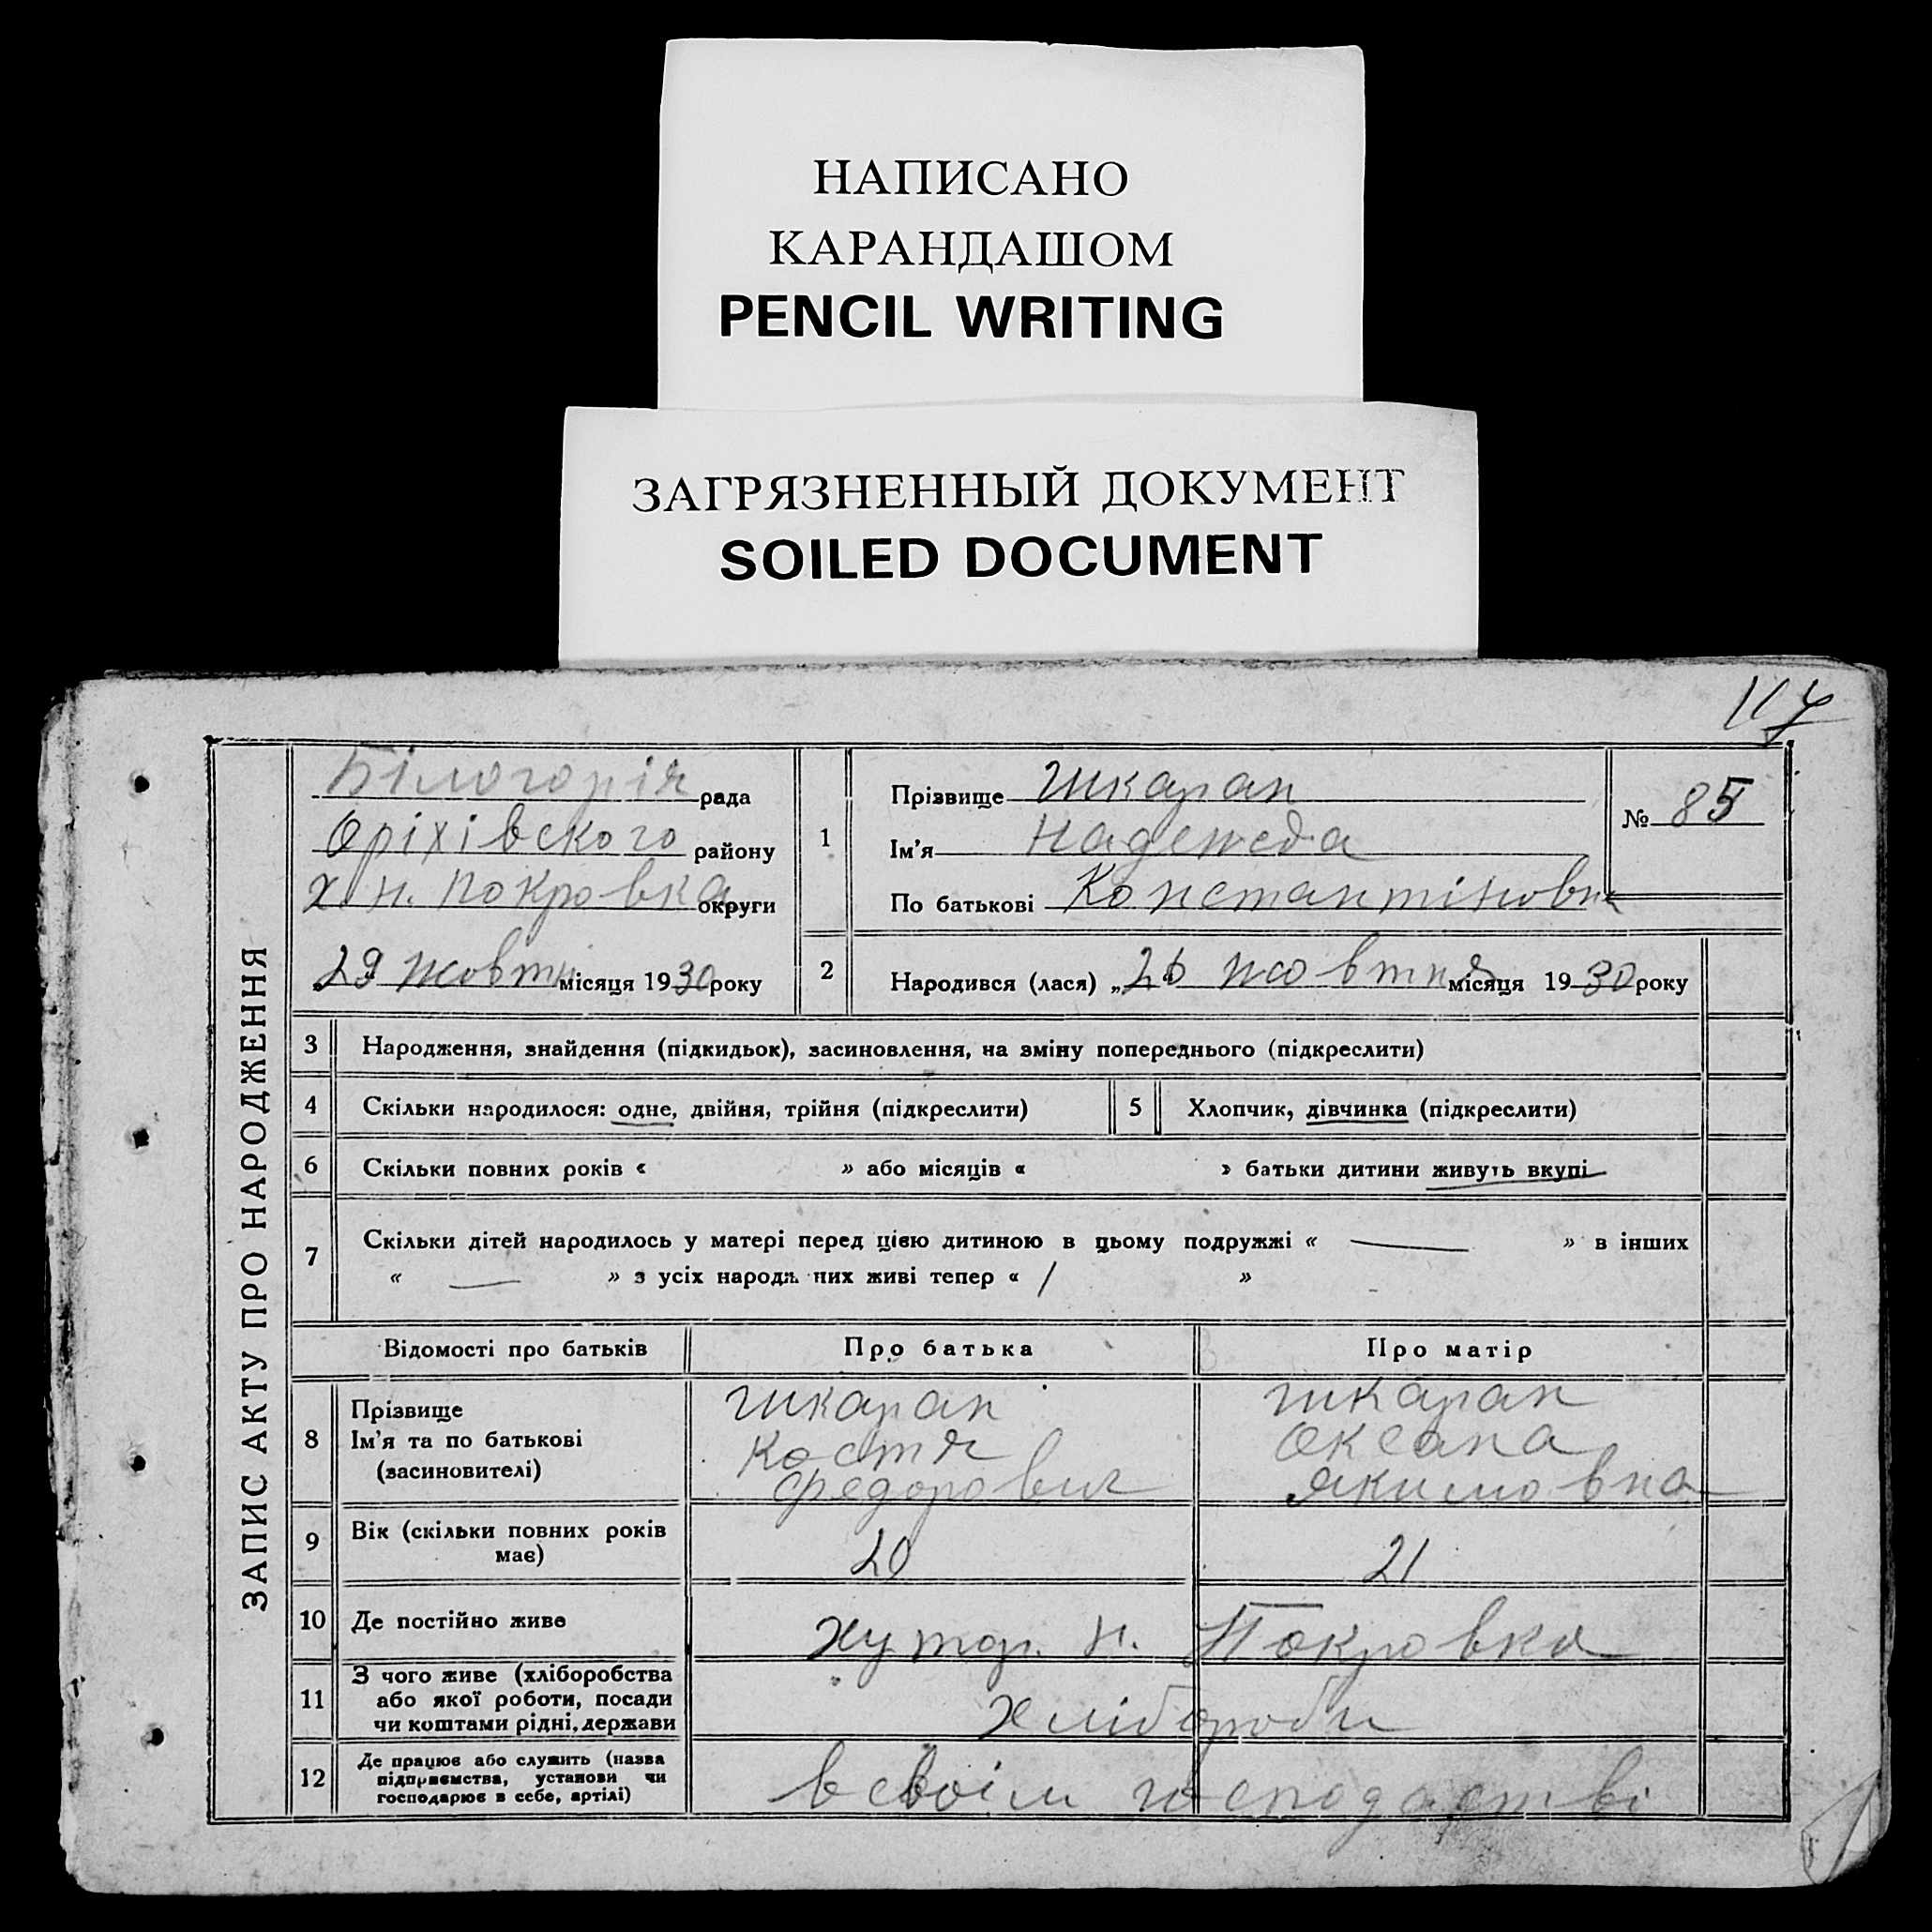 НАПИСАНО
КАРАНДАШОМ
PENCIL WRITING
ЗАГРЯЗНЕННЫЙ ДОКУМЕНТ
SOILED DOCUMENT
ЗАПИС АКТУ ПРО НАРОДЖЕННЯ
Білогорія рада
Оріхівского району
х Н. Покровка округи
29 жовтн місяця 1930 року
1
Прізвище Шкарап
Ім'я Надежда
По батькові Константіновна
№ 85
2 Народився (лася) „26 жовтня місяця 1930 року
3 Народження, знайдення (підкидьок), засиновлення, на зміну попереднього (підкреслити)
4 Скільки народилося: одне, двійня, трійня (підкреслити) 5 Хлопчик, дівчинка (підкреслити)
6 Скільки повних років « » або місяців « » батьки дитини живуть вкупі
7 Скільки дітей народилось у матері перед цією дитиною в цьому подружжі « — » в інших
« — » з усіх народжених живі тепер « / »
Відомості про батьків Про батька Про матір
8 Прізвище
Ім'я та по батькові
(засиновителі)
Шкарап
Костя
Федорович
Шкарап
Оксана
Якимовна
9 Вік (скільки повних років
має)
20 21
10 Де постійно живе хутор. Н. Покровка
11 З чого живе (хліборобства
або якої роботи, посади
чи коштами рідні, держави
хлібороби
12 Де працює або служить (назва
підприємства, установи чи
господарює в себе, артілі)
в своім господарстві